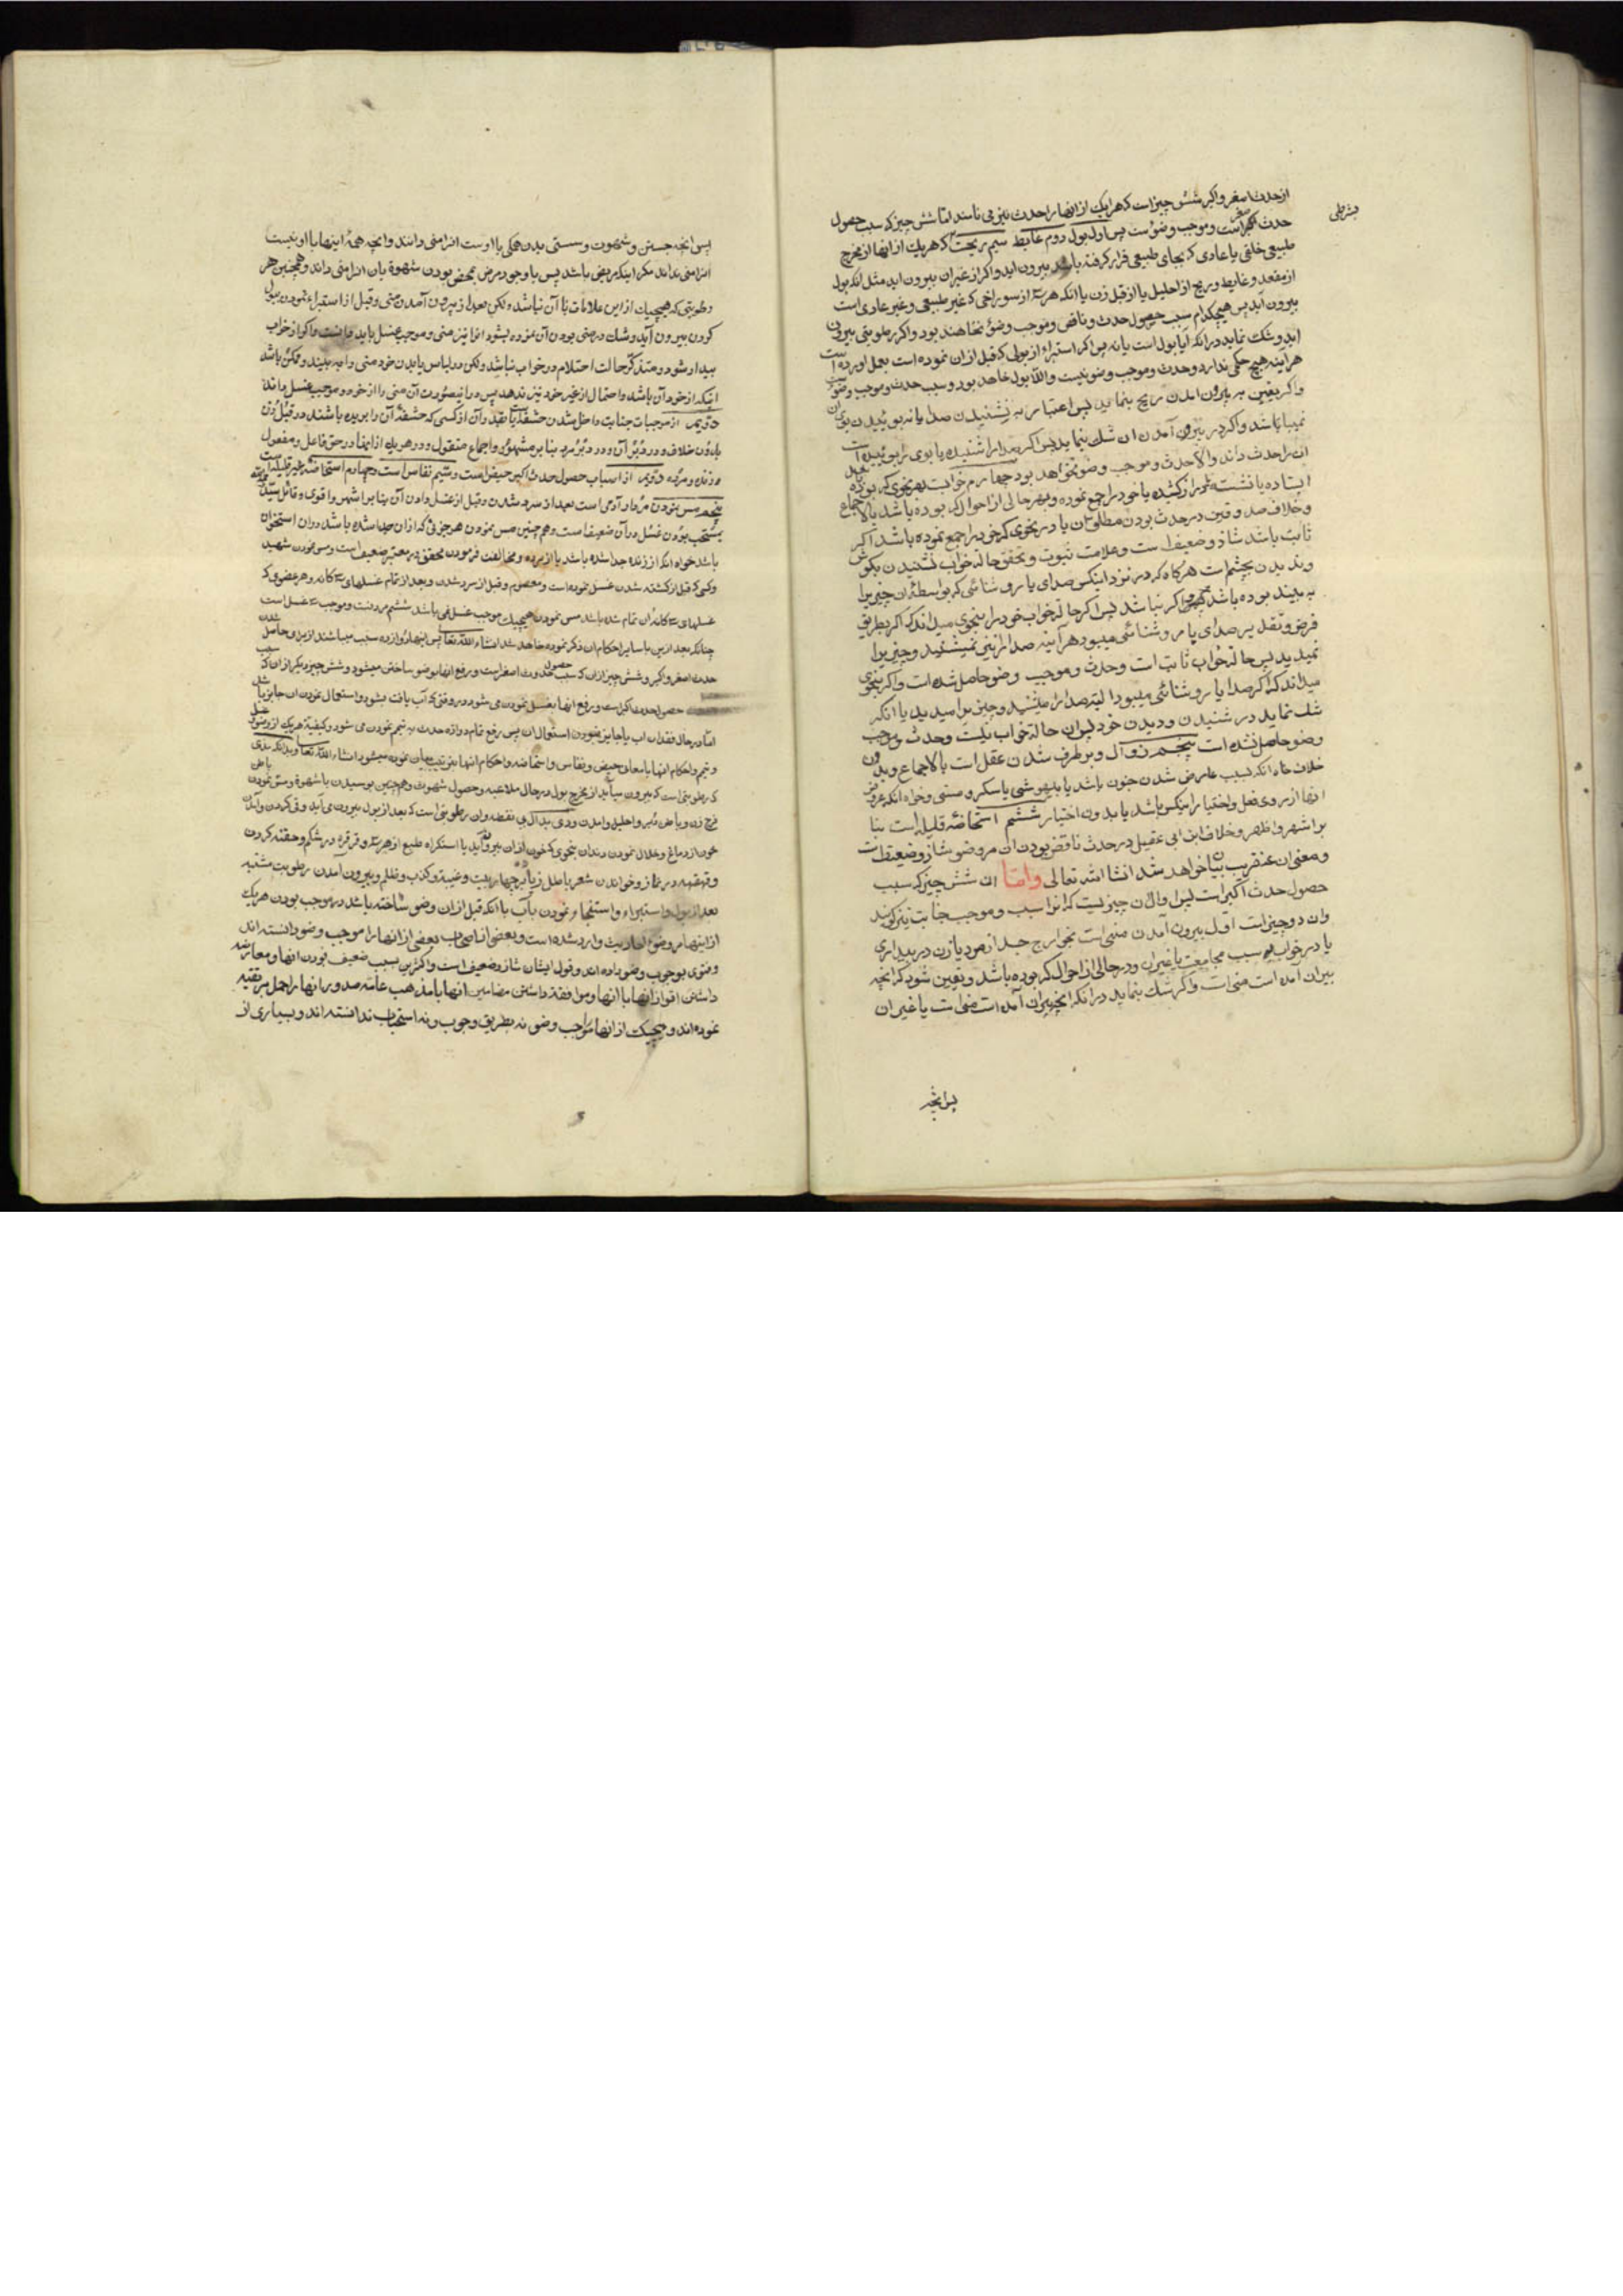 از حدث اصغر و اکبر شش چیز است که هر یک از انها را حدث نیز می نامند اما شش چیز که سبب حصول
بشرطی
حدث اصغر است و موجب وضؤست پس اول بول دوم غایط سیم ریحست که هر یک از انها از مخرج
طبیعی خلقی یا عادی که بجای طبیعی قرار کرفته باشد بیرون اید و اکر از غیر ان بیرون اید مثل انکه بول
از مقعد و غایط و ریح از احلیل یا از قبل زن یا انکه هر سه از سوراخی که غیر طبیعی و غیر عادی است
بیرون اید پس هیچکدام سبب حصول حدث و ناقض و موجب وضؤ نخاهند بود و اکر رطوبتی بیرون
اید و شک نماید در انکه آیا بول است یا نه پس اکر استبراء از بولی که قبل از ان نموده است بعمل اورده است
هر اینه هیچ حکمی ندارد و حدث و موجب وضو نیست و الّا بول خاهد بود و سبب حدث و موجب وضوست
و اکر یقین به بیرون امدن ریح بنماید پس اعتبار به نشنیدن صدا یا نه بوییدن بوی ان
نمیباشد و اکر در بیرون آمدن ان شک بنماید پس اکر صدا را شنیده یا بوی را بوییده است
ان را حدث داند و الّا حدث و موجب وضو نخواهد بود چهارم خوابست بهر نحوی که بوده باشد
استاده یا نشسته دراز کشیده یا خود را جمع نموده و بهر حالی از احوال که بوده باشد بالاجماع
و خلاف صدوقین در حدث بودن مطلق ان یا در نحوی که خود را جمع نموده باشد اکر
ثابت باشد شاذ و ضعیف است و علامت ثبوت و تحقق حالة خواب نشنیدن بکوش
و ندیدن بچشم است هرکاه که در نزد اینکس صدای یا روشنائی که بواسطهٔ ان چیزیرا
به بیند بوده باشد و اکر نباشد پس اکر حالة خواب خود را بنحوی میداند که اکر بطریق
فرض و تقدیر صدای یا روشنائی میبود هر آینه صدا را نیز نمیشنید و چیزیرا
نمیدید پس حالة خواب ثابت است و حدث و موجب وضو حاصل شده است و اکر بنحوی
میداند که اکر صدا یا روشنائی میبود البته صدا را میشنید و چیزیرا میدید یا انکه
شک نماید در شنیدن و دیدن خود پس ان حالة خواب نیست و حدث و موجب
وضو حاصل نشده است پنجم زوال و برطرف شدن عقل است بالاجماع و بدون
خلاف خاه انکه بسبب عارض شدن جنون باشد یا بیهوشی یا سکر و مستی و خواه انکه عروض
انها از روی فعل و اختیار اینکس باشد یا بدون اختیار ششم استحاضهٔ قلیله است بنا
بر اشهر و اظهر و خلاف ابن ابی عقیل در حدث ناقض بودن ان مر وضو شاذ و ضعیف است
و معنی ان عنقریب بیان خواهد شد انشا الله تعالی واما ان شش چیز که سبب
حصول حدث اکبر است پس اول ان چیزیست که انرا سبب و موجب جنابت نیز کویند
و ان دو چیز است اول بیرون آمدن منی است بخارج جسد از مرد یا زن در بیداری
یا در خواب بسبب مجامعت یا غیر ان و در حالی از احوال که بوده باشد و یقین شود که انچه
بیرون آمده است منی است و اکر شک بنماید در انکه انچه بیرون آمده است منی است یا غیر ان
پس انچه
پس انچه جستن و شهوت و سستی بدن همکی با اوست انرا منی دانند و انچه همهٔ اینها با او نیست
انرا منی نداند مکر اینکه مریض باشد پس با وجود مرض بمحض بودن شهوة بان انرا منی داند و همچنین هر
رطوبتی که هیچیک از این علامات با آن نباشد و لکن بعد از بیرون آمدن منی و قبل از استبراء نمودن ببول
کردن بیرون آید و شک در منی بودن آن نموده بشود انرا نیز منی و موجب غسل باید دانست و اکر از خواب
بیدار شود و متذکر حالت احتلام در خواب نباشد و لکن در لباس یا بدن خود منی را به بیند و ممکن باشد
اینکه از خود آن باشد و احتمال از غیر خود نیز ندهد پس در اینصورت آن منی را از خود و موجب غسل داند
دویم از موجبات جنابت داخل شدن حشفه یا بقدر آن از کسی که حشفهٔ آن را بریده باشند در قبل زن
بدون خلاف و در دبر آن و در دبر مرد بنا بر مشهور و اجماع منقول و در هر یک از اینها در حق فاعل و مفعول
و زنده و مرده دویم از اسباب حصول حدث اکبر حیض است و سیم نفاس است و چهارم استحاضهٔ غیر قلیله است
پنجم مس نمودن مردار آدمی است بعد از سرد شدن و قبل از غسل دادن آن بنا بر اشهر و اقوی و قائل شدن
بمستحب بودن غسل در آن ضعیف است و همچنین مس نمودن هر جزوی که از ان جدا شده باشد و در ان استخوان
باشد خواه انکه از زنده جدا شده باشد یا از مرده و مخالفت فرمودن محقق در معتبر ضعیف است و مس نمودن شهید
و کسی که قبل از کشته شدن غسل نموده است و معصوم و قبل از سرد شدن و بعد از تمام غسلهای سه کانه و هر عضوی که
غسلهای سه کانهٔ ان تمام شده باشد مس نمودن هیچیک موجب غسل نمی باشد ششم مردنست و موجب سه غسل است
چنانکه بعد از این با سایر احکام ان ذکر نموده خاهد شد انشاء الله تعالی پس اینها دوازده سبب میباشند از برای حاصل شدن
حدث اصغر و اکبر و شش چیز از ان که سبب حصول حدث اصغر است و رفع انها بوضو ساختن میشود و شش چیز دیکر از ان که سبب
حصول حدث اکبر است و رفع انها بغسل نمودن می شود در وقتی که آب یافت بشود و استعمال نمودن ان جایز باشد
اما در حال فقدان اب یا جایز نبودن استعمال ان پس رفع تمام دوازده حدث به تیمم نمودن می شود و کیفیة هر یک از وضو و غسل
و تیمم و احکام انها با معانی حیض و نفاس و استحاضه و احکام انها بترتیب بیان نموده میشود انشاء الله تعالی و بدانکه مذی
که رطوبتی است که بیرون میآید از مخرج بول در حال ملاعبه و حصول شهوت و همچنین بوسیدن با شهوة و مس نمودن باطن
فرج زن و باطن دبر و احلیل و امدن ودی بدال بی نقطه و ان رطوبتی است که بعد از بول بیرون می آید و قی کردن و امدن
خون از دماغ و خلال نمودن دندان بنحوی که خون از ان بیرون آید با استکراه طبع از هر سه و قرقره در شکم و حقنه کردن
و قهقهه در نماز و خواندن شعر باطل زیاده بر چهار بیت و غیبة و کذب و ظلم و بیرون آمدن رطوبت مشتبه
بعد از بول و استبراء و استنجاء نمودن بآب با انکه قبل از ان وضو ساخته باشد در موجب بودن هر یک
از اینها مر وضو احادیث وارد شده است و بعضی از اصحاب بعضی از انها را موجب وضو دانسته اند
و فتوی بوجوب وضو داده اند و قول ایشان شاذ و ضعیف است و اکثرین بسبب ضعیف بودن انها و معارضه
داشتن اقوا از انها با انها و موافقة داشتن مضامین انها با مذهب عامه صدور انها را حمل بر تقیه
نموده اند و هیچیک از انها موجب وضو نه بطریق وجوب و نه استحباب ندانسته اند و بسیاری از